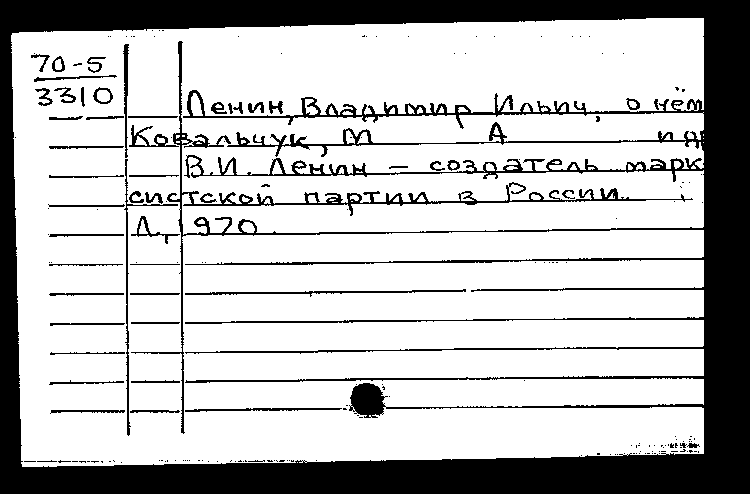 70-5
3310
Ленин, Владимир Ильич, о нём
Ковальчук, М А и др
В.И. Ленин – создатель марк
систской партии в России.
Л, 1970.